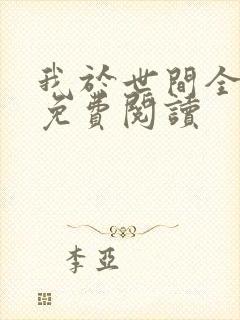 我於世間全
免費閱讀
李亞